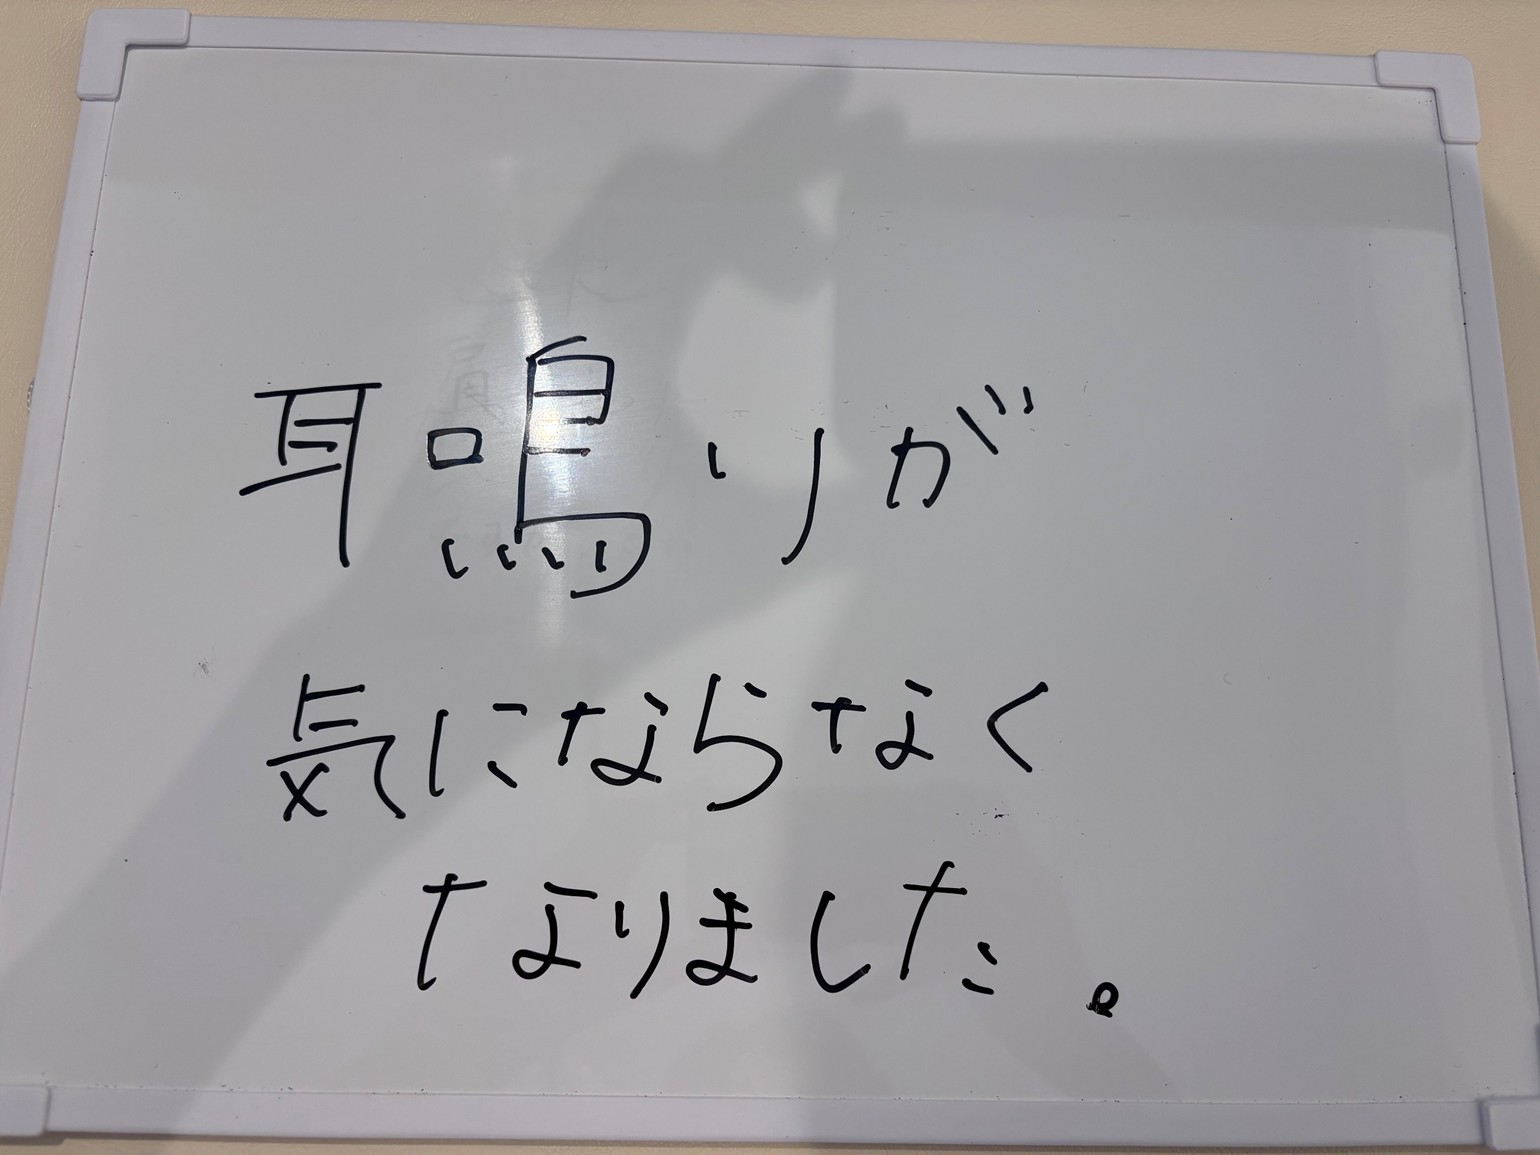 耳鳴りが
気にならなく
なりました。